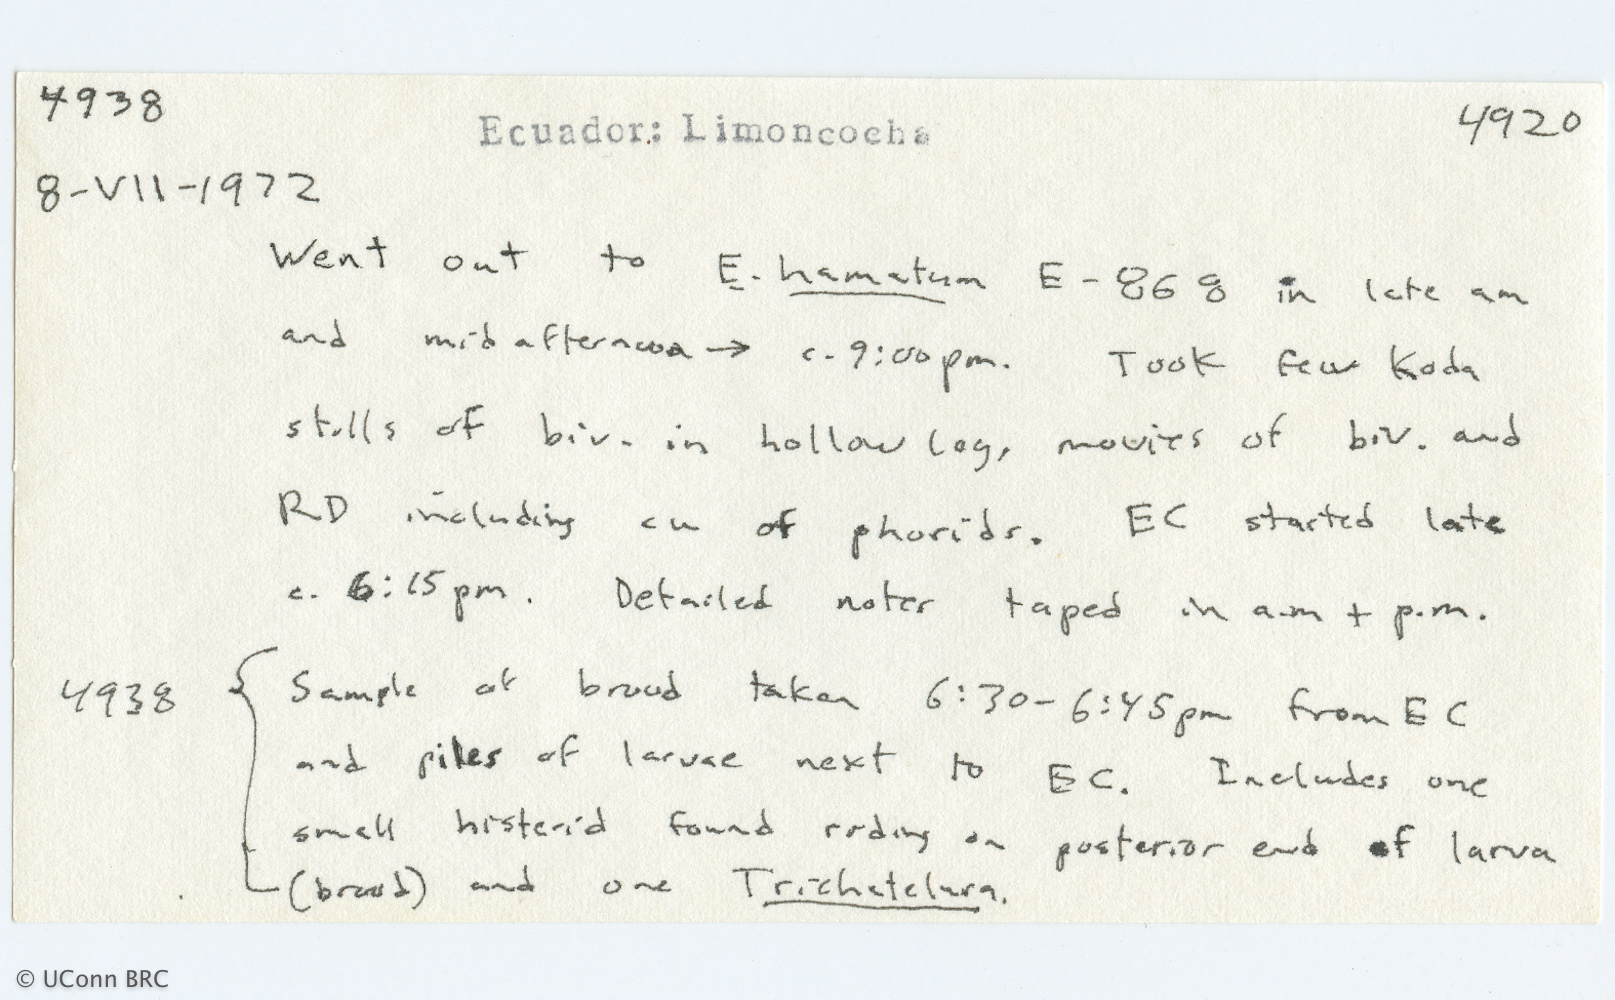 4938
Ecuador: Limoncocha
4920
8-VII-1972
Went out to E. hamatum E-868 in late am
and mid afternoon → c. 9:00pm. Took few Koda
stills of biv. in hollow log, movies of biv. and
RD including cu of phorids. EC started late
c. 6:15pm. Detailed notes taped in a.m + p.m.
4938 { Sample of brood taken 6:30-6:45pm from EC
and piles of larvae next to EC. Includes one
small histerid found riding on posterior end of larva
(brood) and one Trichatelura.
© UConn BRC